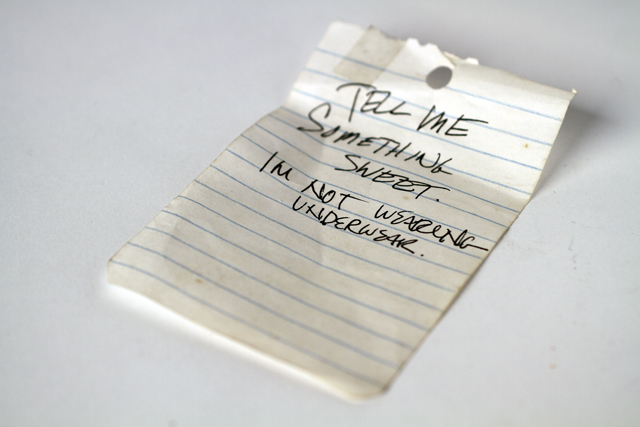 TELL ME
SOMETHING
SWEET.
I'M NOT WEARING
UNDERWEAR.